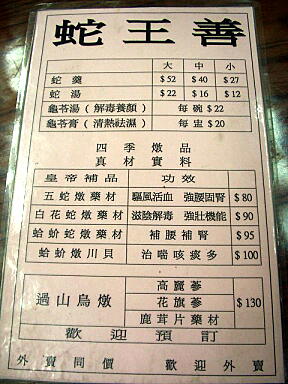 蛇王善
大 中 小
蛇羹 $52 $40 $27
蛇湯 $22 $16 $12
龜苓湯（解毒養顏） 每碗 $22
龜苓膏（清熱祛濕） 每盅 $20
四季燉品
真材實料
皇帝補品 功效
五蛇燉藥材 驅風活血 強腰固腎 $80
白花蛇燉藥材 滋陰解毒 強壯機能 $90
蛤蚧蛇燉藥材 補腰補腎 $95
蛤蚧燉川貝 治喘咳痰多 $100
過山烏燉 高麗蔘 $130
花旗蔘
鹿茸片藥材
歡迎預訂
外賣同價 歡迎外賣